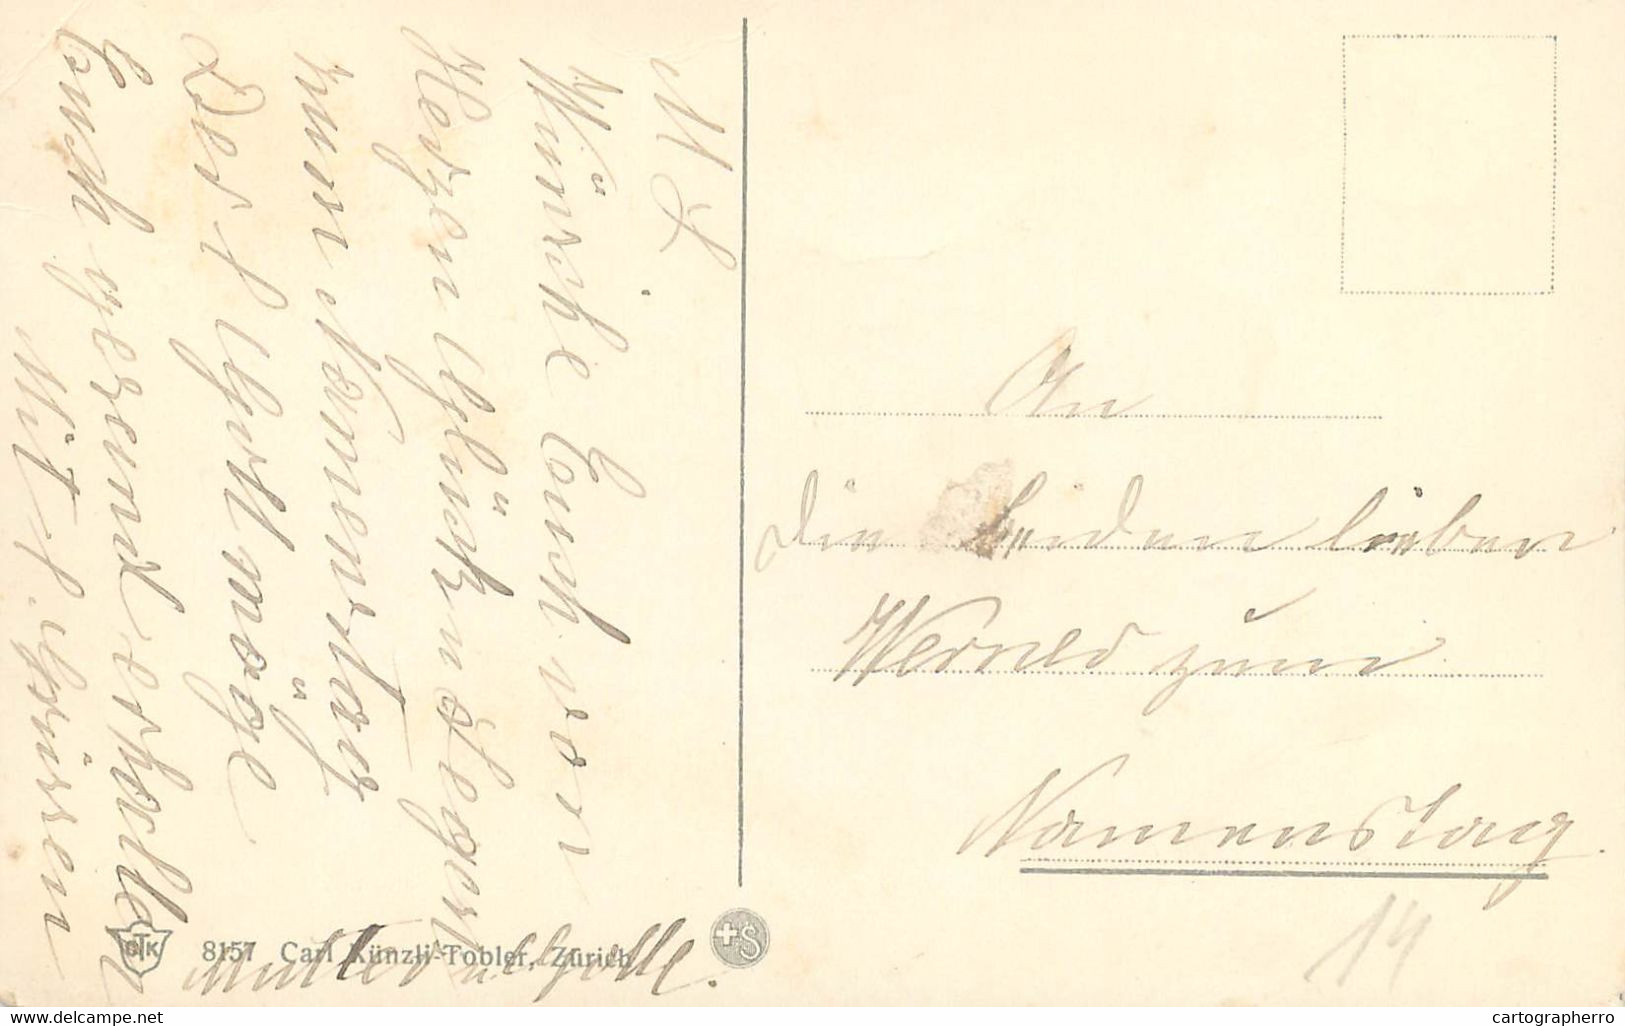 M L.
Wünsche Euch von
Herzen Glück und Segen
zum Namenstag
Der l Gott möge
Euch gesund erhalten
Mit l. Grüssen
Mutter u.
An
die beiden lieben
Werner zum
Namenstag.
14
CTK
8157 Carl Künzli-Tobler, Zürich
+S
www.delcampe.net
cartographerro